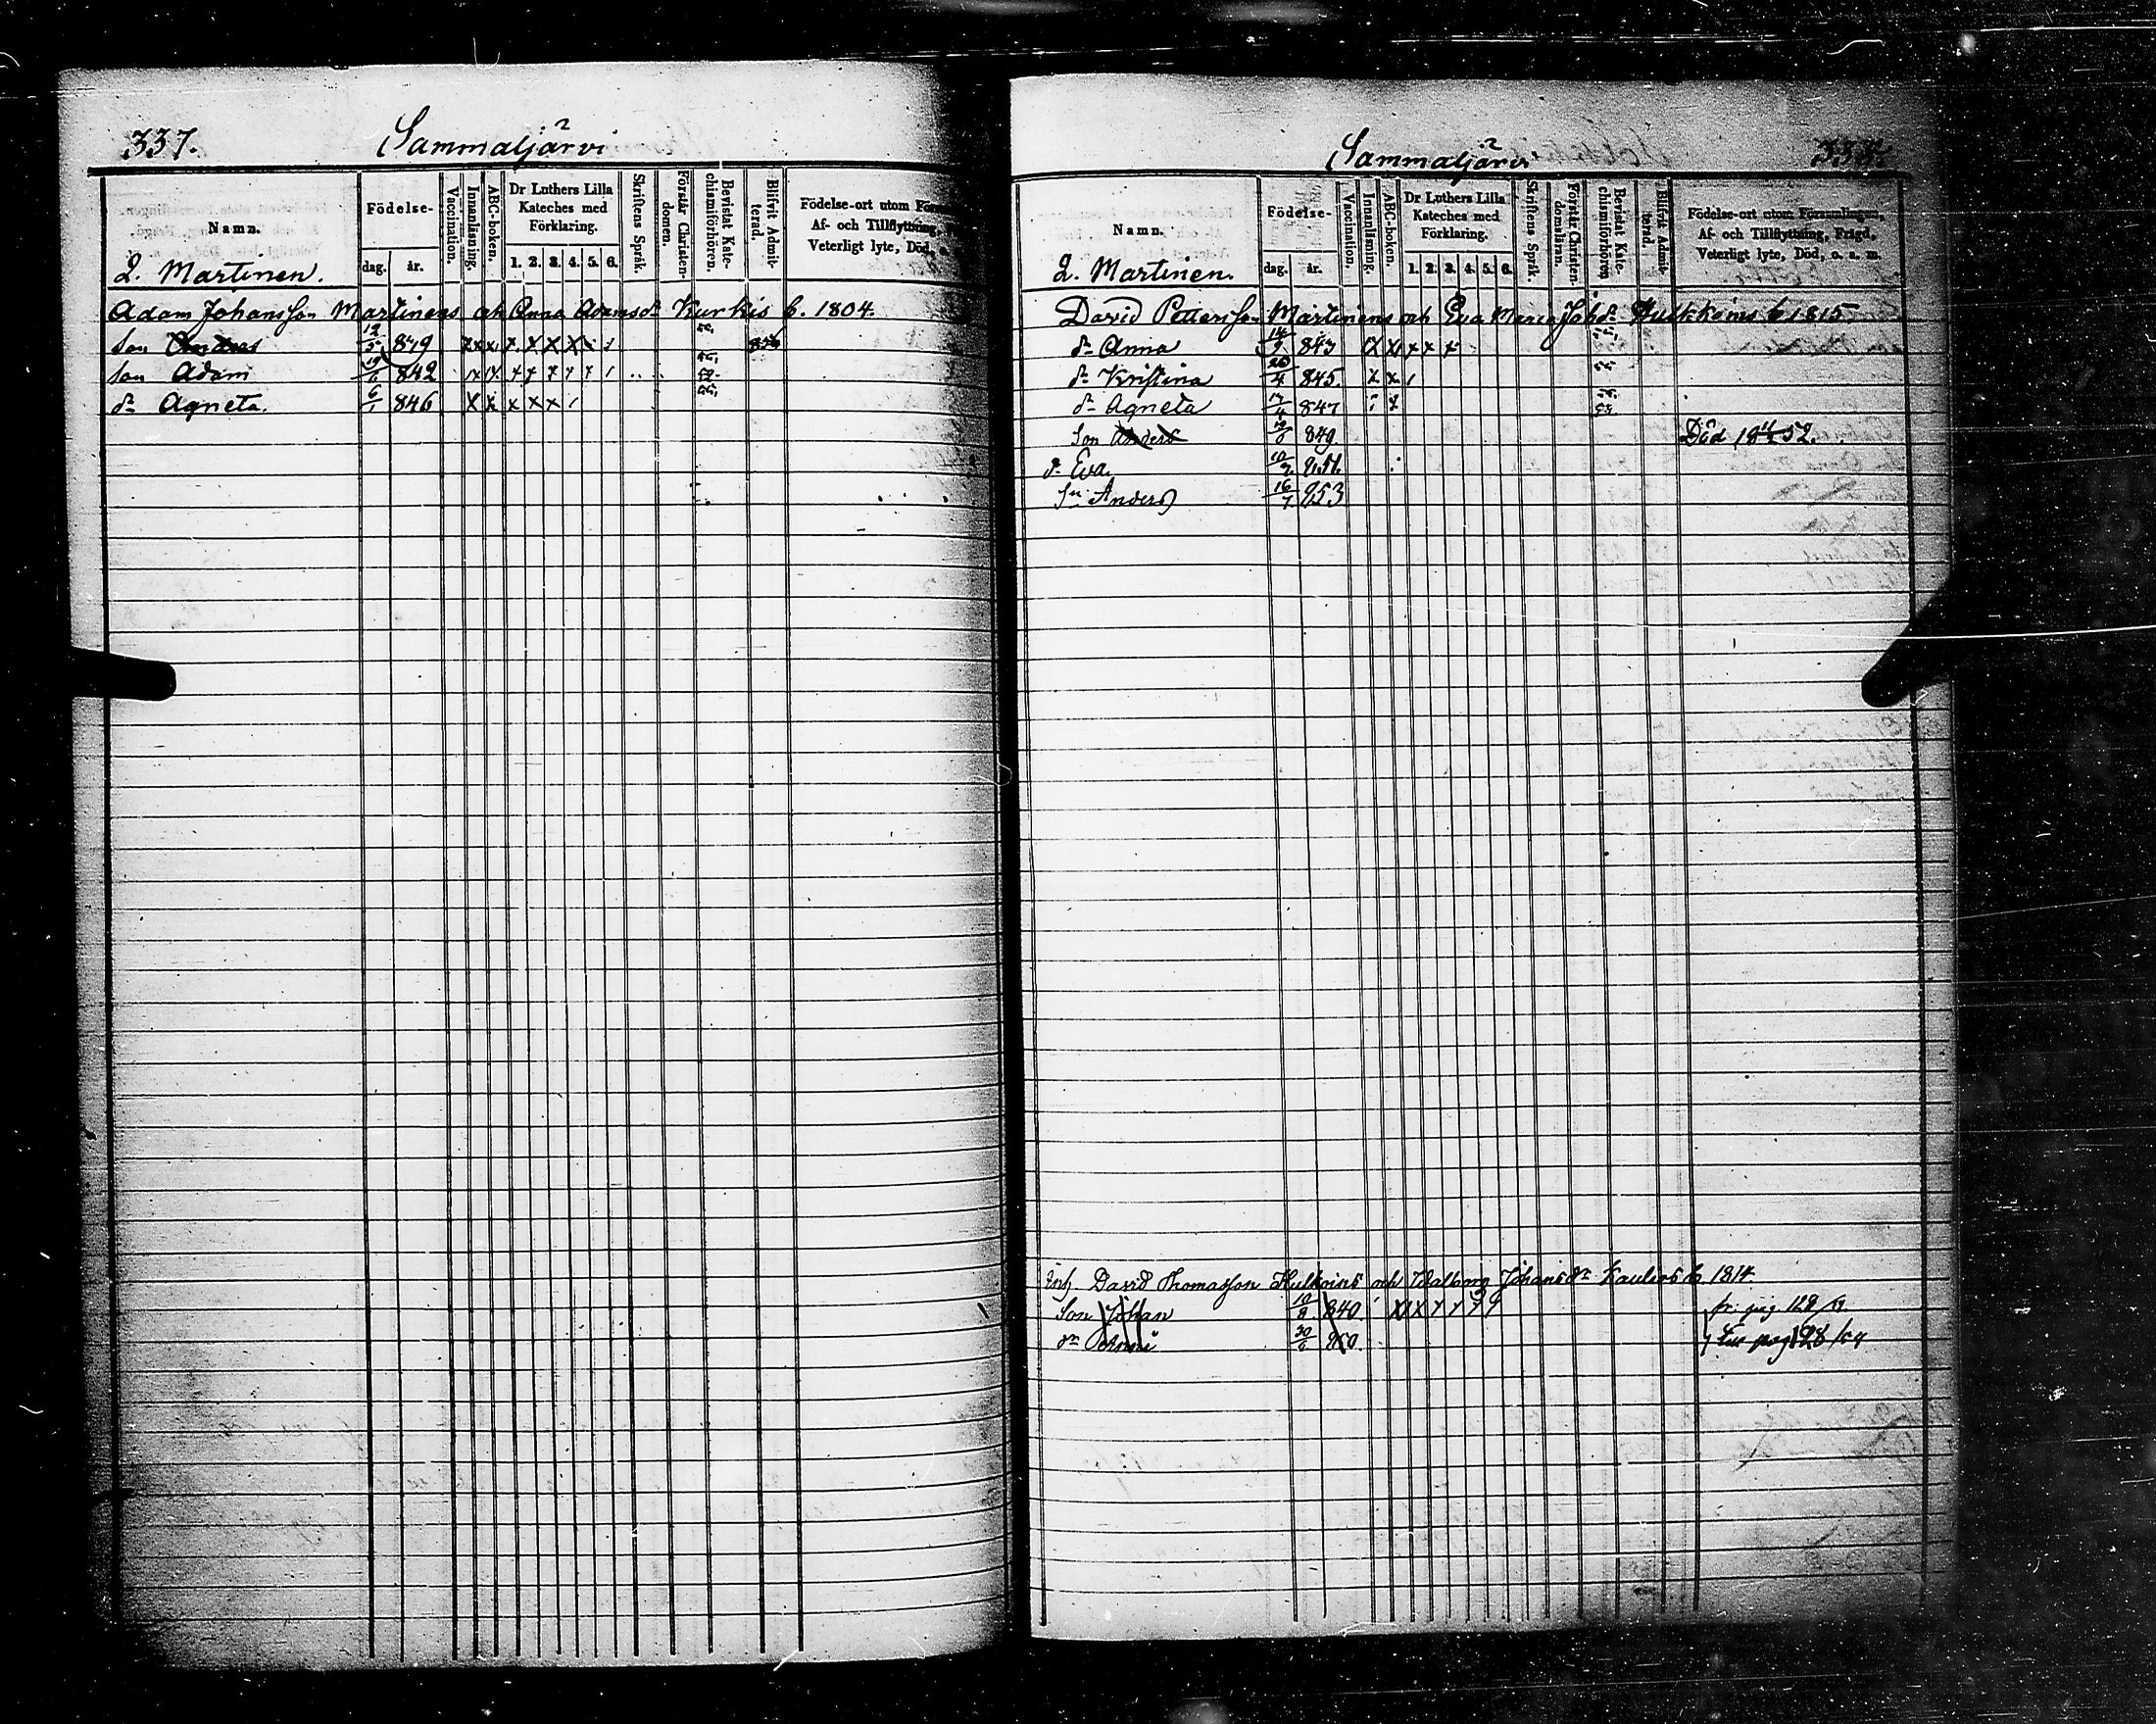 337.
Sammaljärvi 2
Namn.
Födelse-
dag. år.
Vaccination.
Innanläsning.
ABC-boken.
Dr Luthers Lilla
Kateches med
Förklaring.
1. 2. 3. 4. 5. 6.
Skriftens Språk.
Förstår Christen-
domen.
Bevistat Kate-
chismiförhören.
Blifvit Admit-
terad.
Födelse-ort utom
Af- och Tillflyttning,
Veterligt lyte, Död,
2. Martinen.
Adam Johansson Martinens och Anna Adamsdr Kurkis b. 1804.
Son Anders 12/5 839
Son Adam 19/6 842
dr Agneta. 6/1 846
Sammaljärvi 2
Namn.
Födelse-
dag. år.
Vaccination.
Innanläsning.
ABC-boken.
Dr Luthers Lilla
Kateches med
Förklaring.
1. 2. 3. 4. 5. 6.
Skriftens Språk.
Förstår Christen-
domsläran.
Bevistat Kate-
chismiförhören
Blifvit Admit-
terad.
Födelse-ort utom Församlingen,
Af- och Tillflyttning, Frägd,
Veterligt lyte, Död, o. s. m.
2. Martinen.
David Pettersson Martinens och Eva Maria Joh.dr b 1815.
dr Anna 14/9 843
dr Kristina 26/4 845.
dr Agneta 17/4 847
Son Anders 849 Död 18 52.
dr Eva. 10/9 851.
Sn Anders 16/7 853
Inh David Thomasson Hulkoins och Walborg Johansdr b 1814.
Son Johan 10/8 840. fr. pag. 128
dr Anni 30/6 850. till pag 128/54